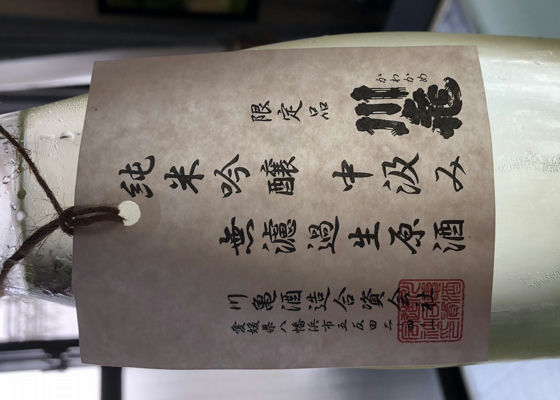 かわかめ
川亀
限定品
純米吟醸 中汲み
無濾過生原酒
川亀酒造合資会社
愛媛県八幡浜市五反田二